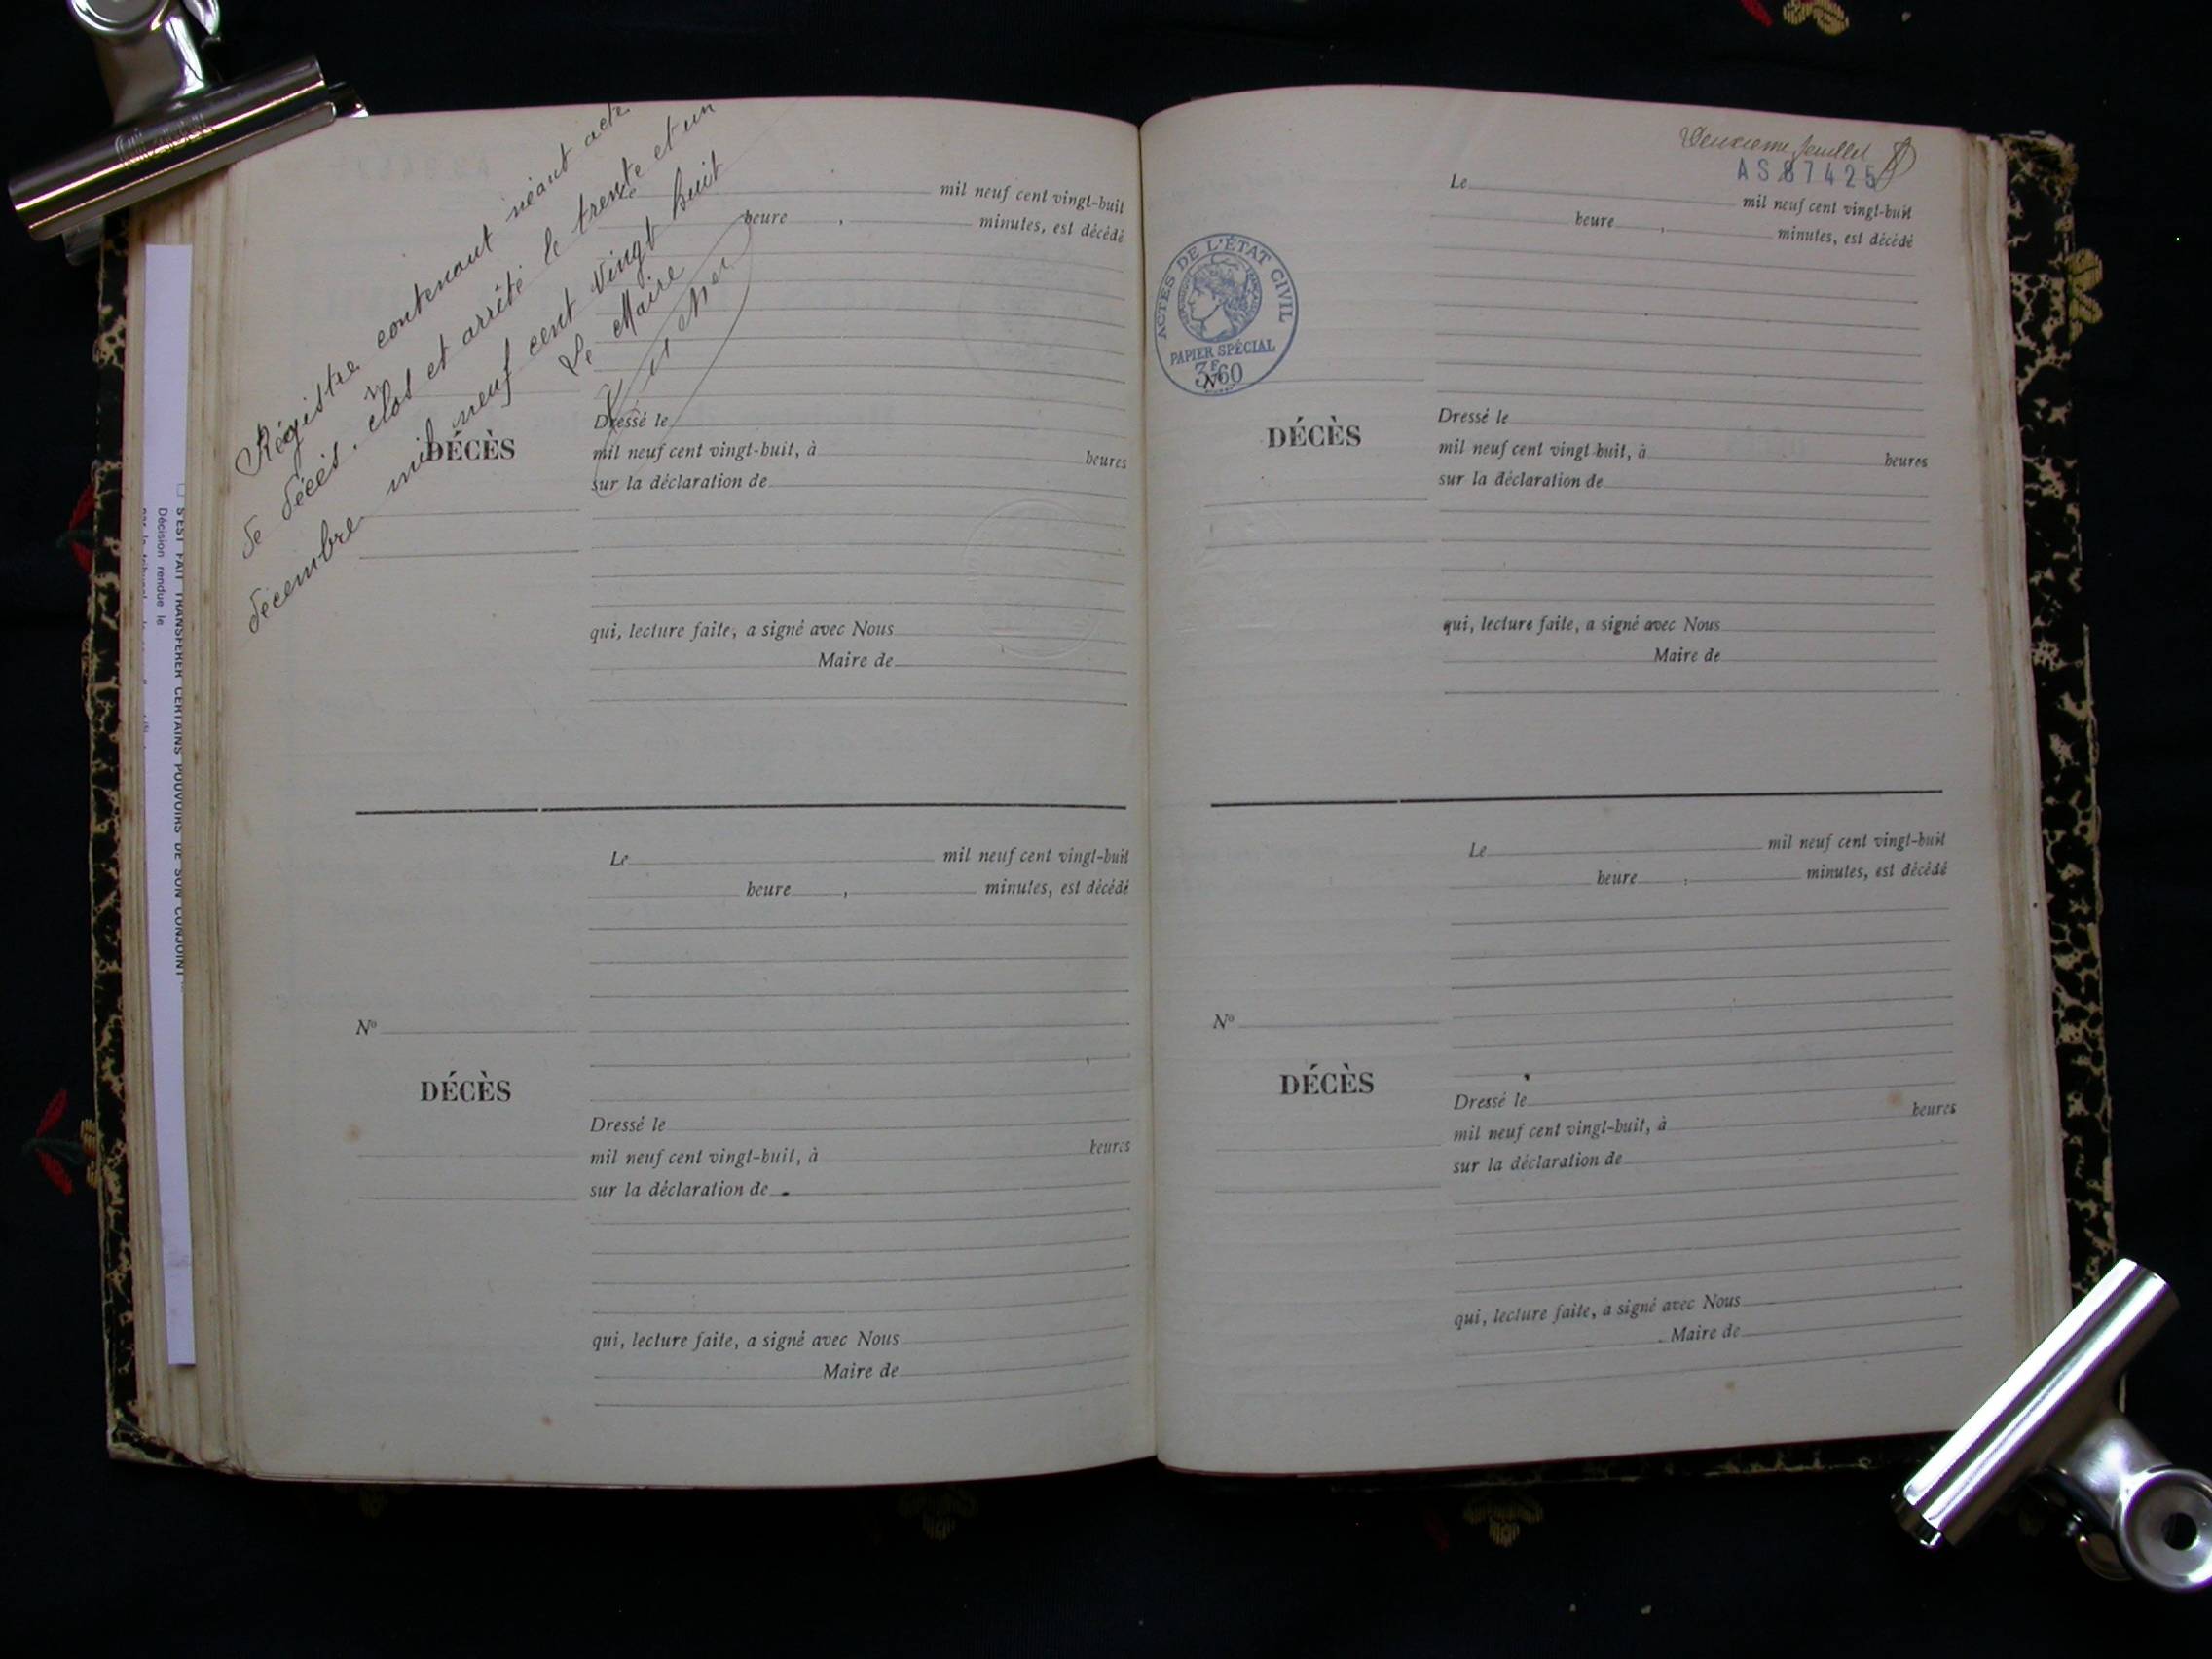 Régistre contenant néant acte
de décès. clos et arrêté le trente et un
décembre mil neuf cent vingt huit
Le Maire
mil neuf cent vingt-huit
heure , minutes, est décédé
Nº
DÉCÈS
Dressé le
mil neuf cent vingt-huit, à heures
sur la déclaration de
qui, lecture faite, a signé avec Nous
Maire de
Le mil neuf cent vingt-huit
heure , minutes, est décédé
Nº
DÉCÈS
Dressé le
mil neuf cent vingt-huit, à heures
sur la déclaration de
qui, lecture faite, a signé avec Nous
Maire de
S'EST FAIT TRANSFÉRER CERTAINS POUVOIRS DE SON CONJOINT
Décision rendue le
Deuxième feuillet
AS87425
Le mil neuf cent vingt-huit
heure , minutes, est décédé
ACTES DE L'ÉTAT CIVIL
PAPIER SPÉCIAL
3F60
Nº
DÉCÈS
Dressé le
mil neuf cent vingt-huit, à heures
sur la déclaration de
qui, lecture faite, a signé avec Nous
Maire de
Le mil neuf cent vingt-huit
heure , minutes, est décédé
Nº
DÉCÈS
Dressé le
mil neuf cent vingt-huit, à heures
sur la déclaration de
qui, lecture faite, a signé avec Nous
Maire de